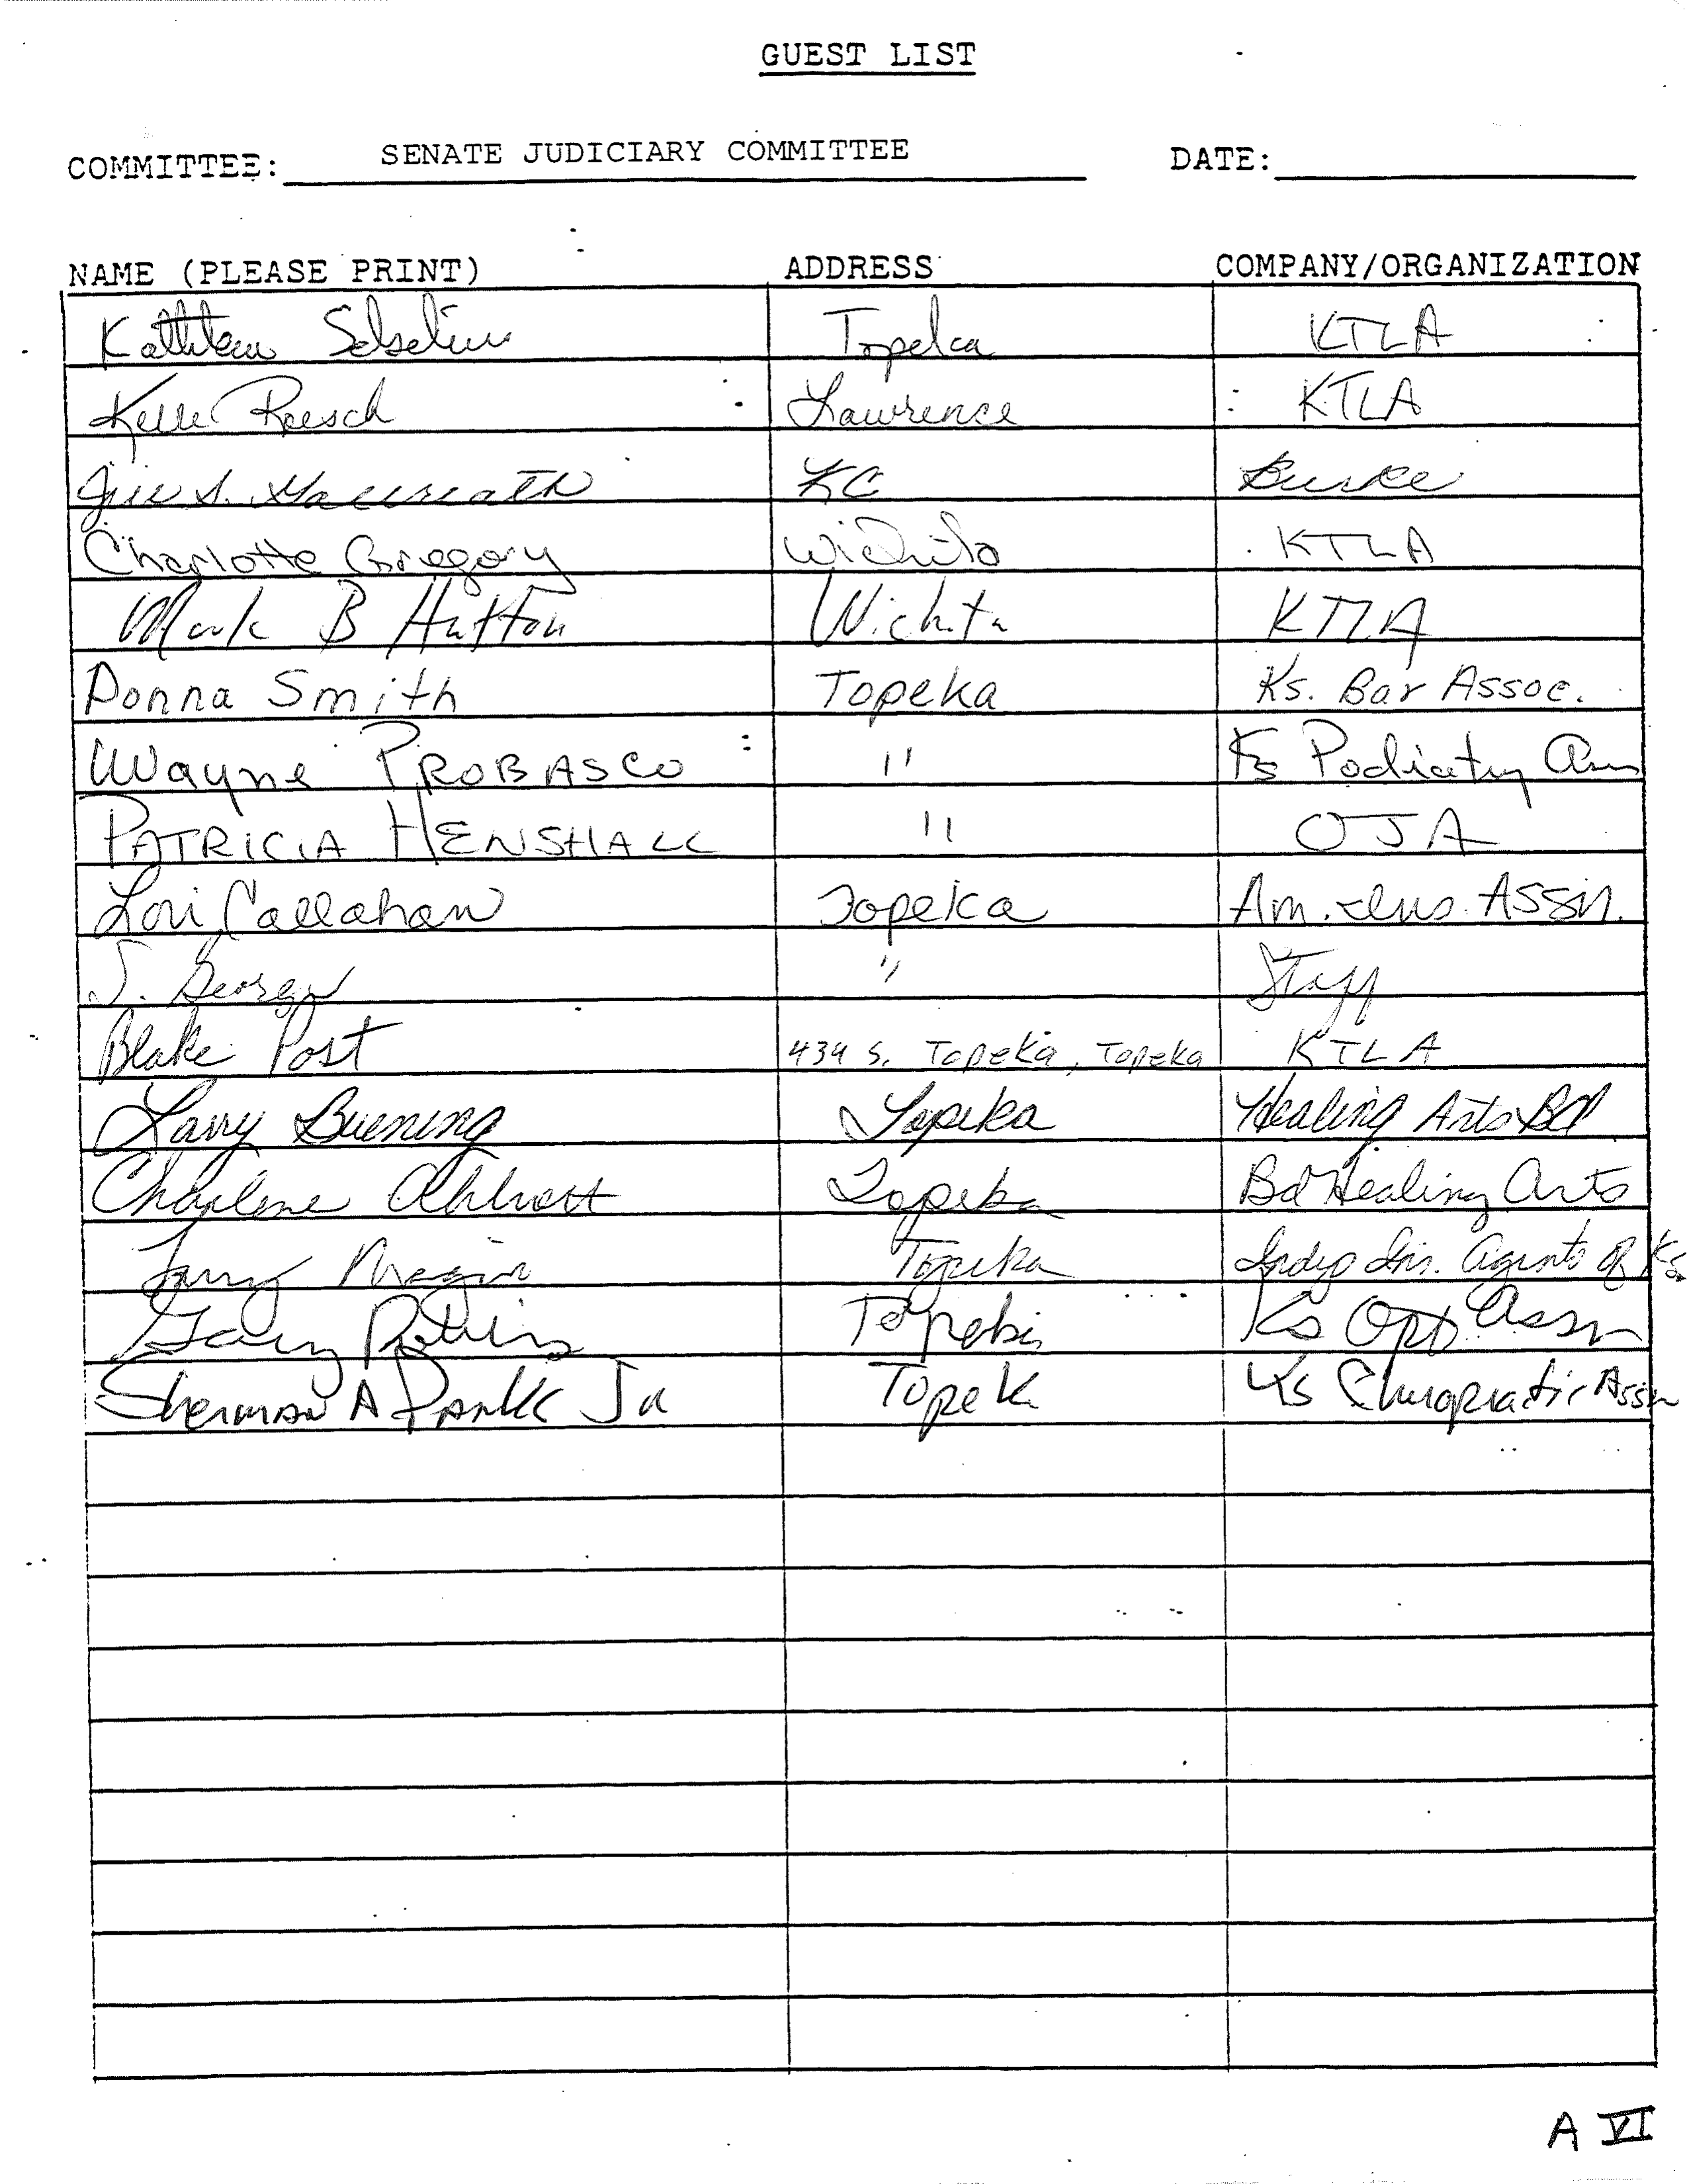 GUEST LIST
COMMITTEE: SENATE JUDICIARY COMMITTEE DATE:
NAME (PLEASE PRINT) ADDRESS COMPANY/ORGANIZATION
Kathleen Sebelius Topeka KTLA
Kelle Reesch Lawrence KTLA
KC Burke
Charlotte Gregory Wichita KTLA
Mark B Hutton Wichita KTLA
Donna Smith Topeka Ks. Bar Assoc.
Wayne PROBASCO " Ks Podiatry Assn
PATRICIA HENSHALL " OJA
Lori Callahan Topeka Am. Ins. Assn.
J. " Staff
Blake Post 434 S. Topeka, Topeka KTLA
Larry Buening Topeka Healing Arts Bd
Charlene Topeka Bd Healing Arts
Larry Magill Topeka Indep Ins. Agents of Ks.
Gary Robbins Topeka Ks Opt Assn
Sherman A Parks Jr Topek Ks Chiropractic Assn
A VI